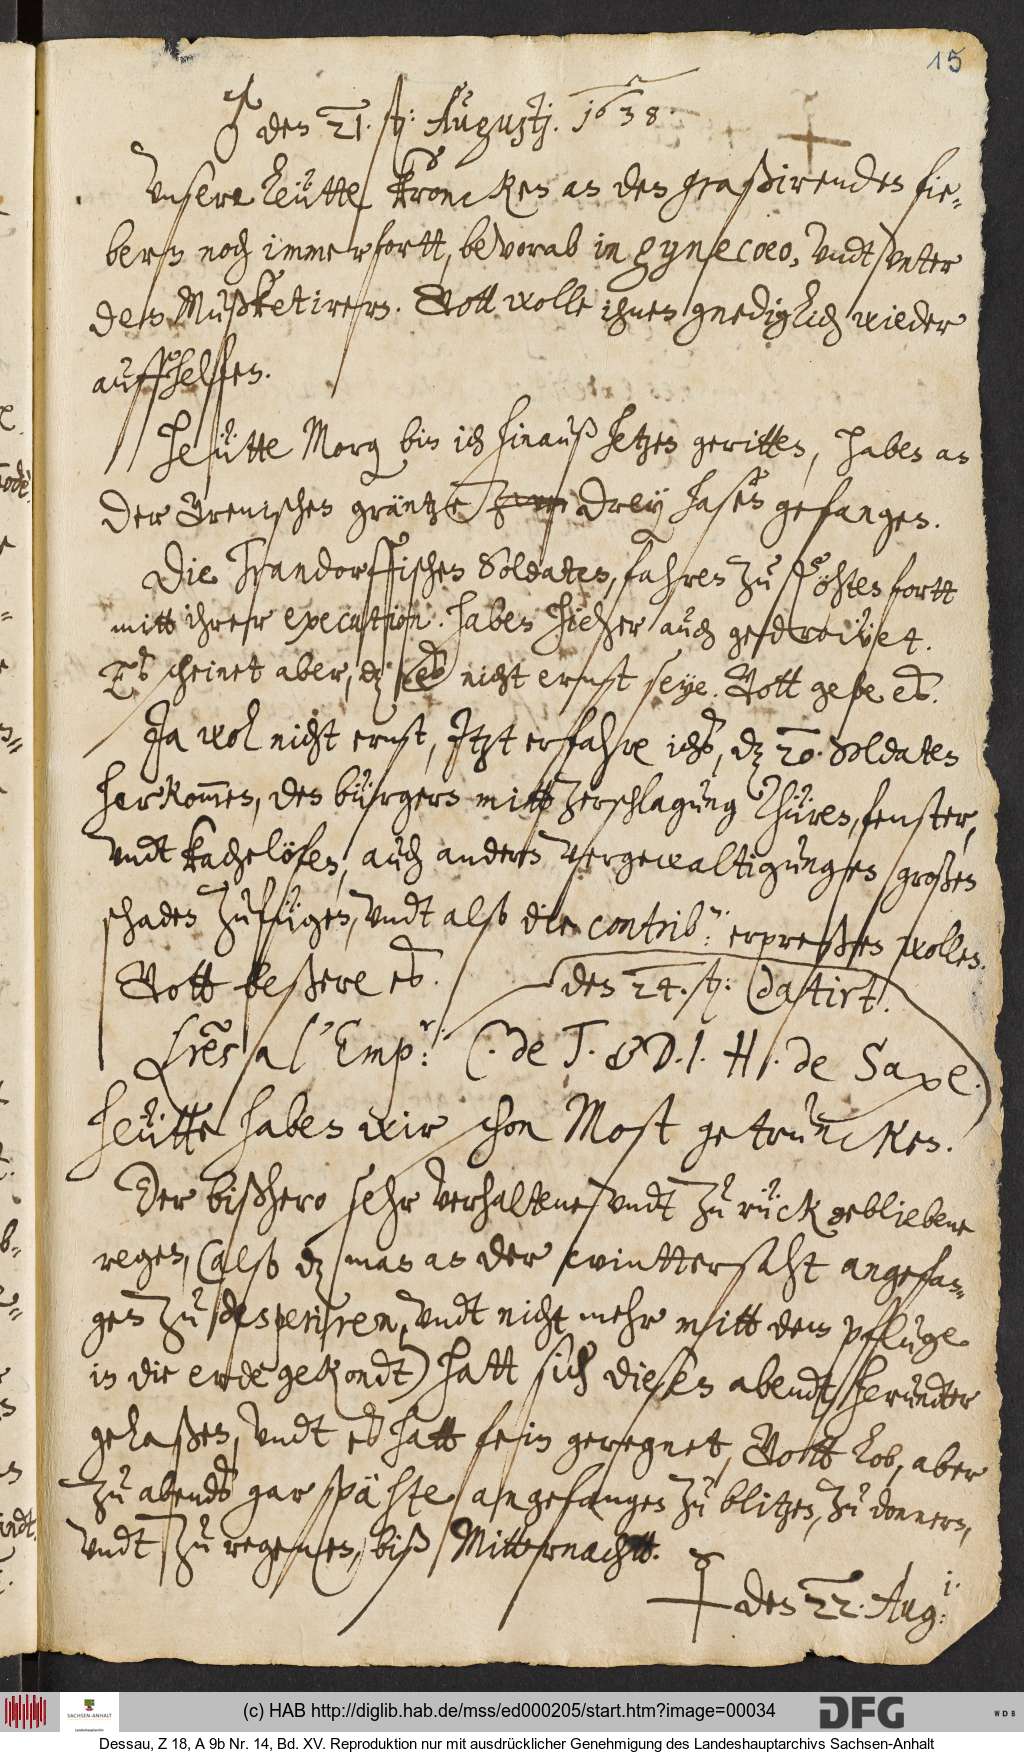 15
♂ den 21. sten: Augustj. 1638.
Vnsere leütte krancken an den graßirenden fie-
bern noch immerfortt, bevorab in gynecæo, vndt vnter
den Mußketirern. Gott wolle ihnen gnediglich wieder
auffhelffen.
Heütte Morg bin ich hinauß hetzen geritten, haben an
der Grenischen gräntze drey hasen gefangen.
Die Trandorffischen Soldaten, fahren zu fortt
mitt ihrer execution. haben hieher auch gedroiyet.
Es scheinet aber, dz es nicht ernst seye. Gott gebe es.
Ja wol nicht ernst, Itzt erfahre ichs, dz 20. Soldaten
herkommen, den bürgern mitt zerschlagung Thüren, fenster,
vndt kachelöfen, auch andern vergewaltigungen großen
schaden zufügen, vndt also die contrib.n: erpreßen wollen.
Gott beßere es. den 24. sten: datirt.
Lres a l'Emp.r: (. de J. E D. 1. H. de Saxe.
Heütte haben wir schon Most getruncken.
Der bißhero sehr verhaltene, vndt zu rück gebliebene
regen, (also dz man an der wintter saht angefan-
gen zu desperiren, vndt nicht mehr mitt dem pfluge
in die erde gekondt) hatt sich diesen abendt herundter
gelaßen, vndt es hatt fein geregnet, Gott lob, aber
zu abends gar spähte angefangen zu blitzen, zu donnern,
vndt zu regenen, biß Mitternachtt.
☿ den 22. Aug.i:
(c) HAB http://diglib.hab.de/mss/ed000205/start.htm?image=00034
SACHSEN-ANHALT
DFG
WDB
Dessau, Z 18, A 9b Nr. 14, Bd. XV. Reproduktion nur mit ausdrücklicher Genehmigung des Landeshauptarchivs Sachsen-Anhalt